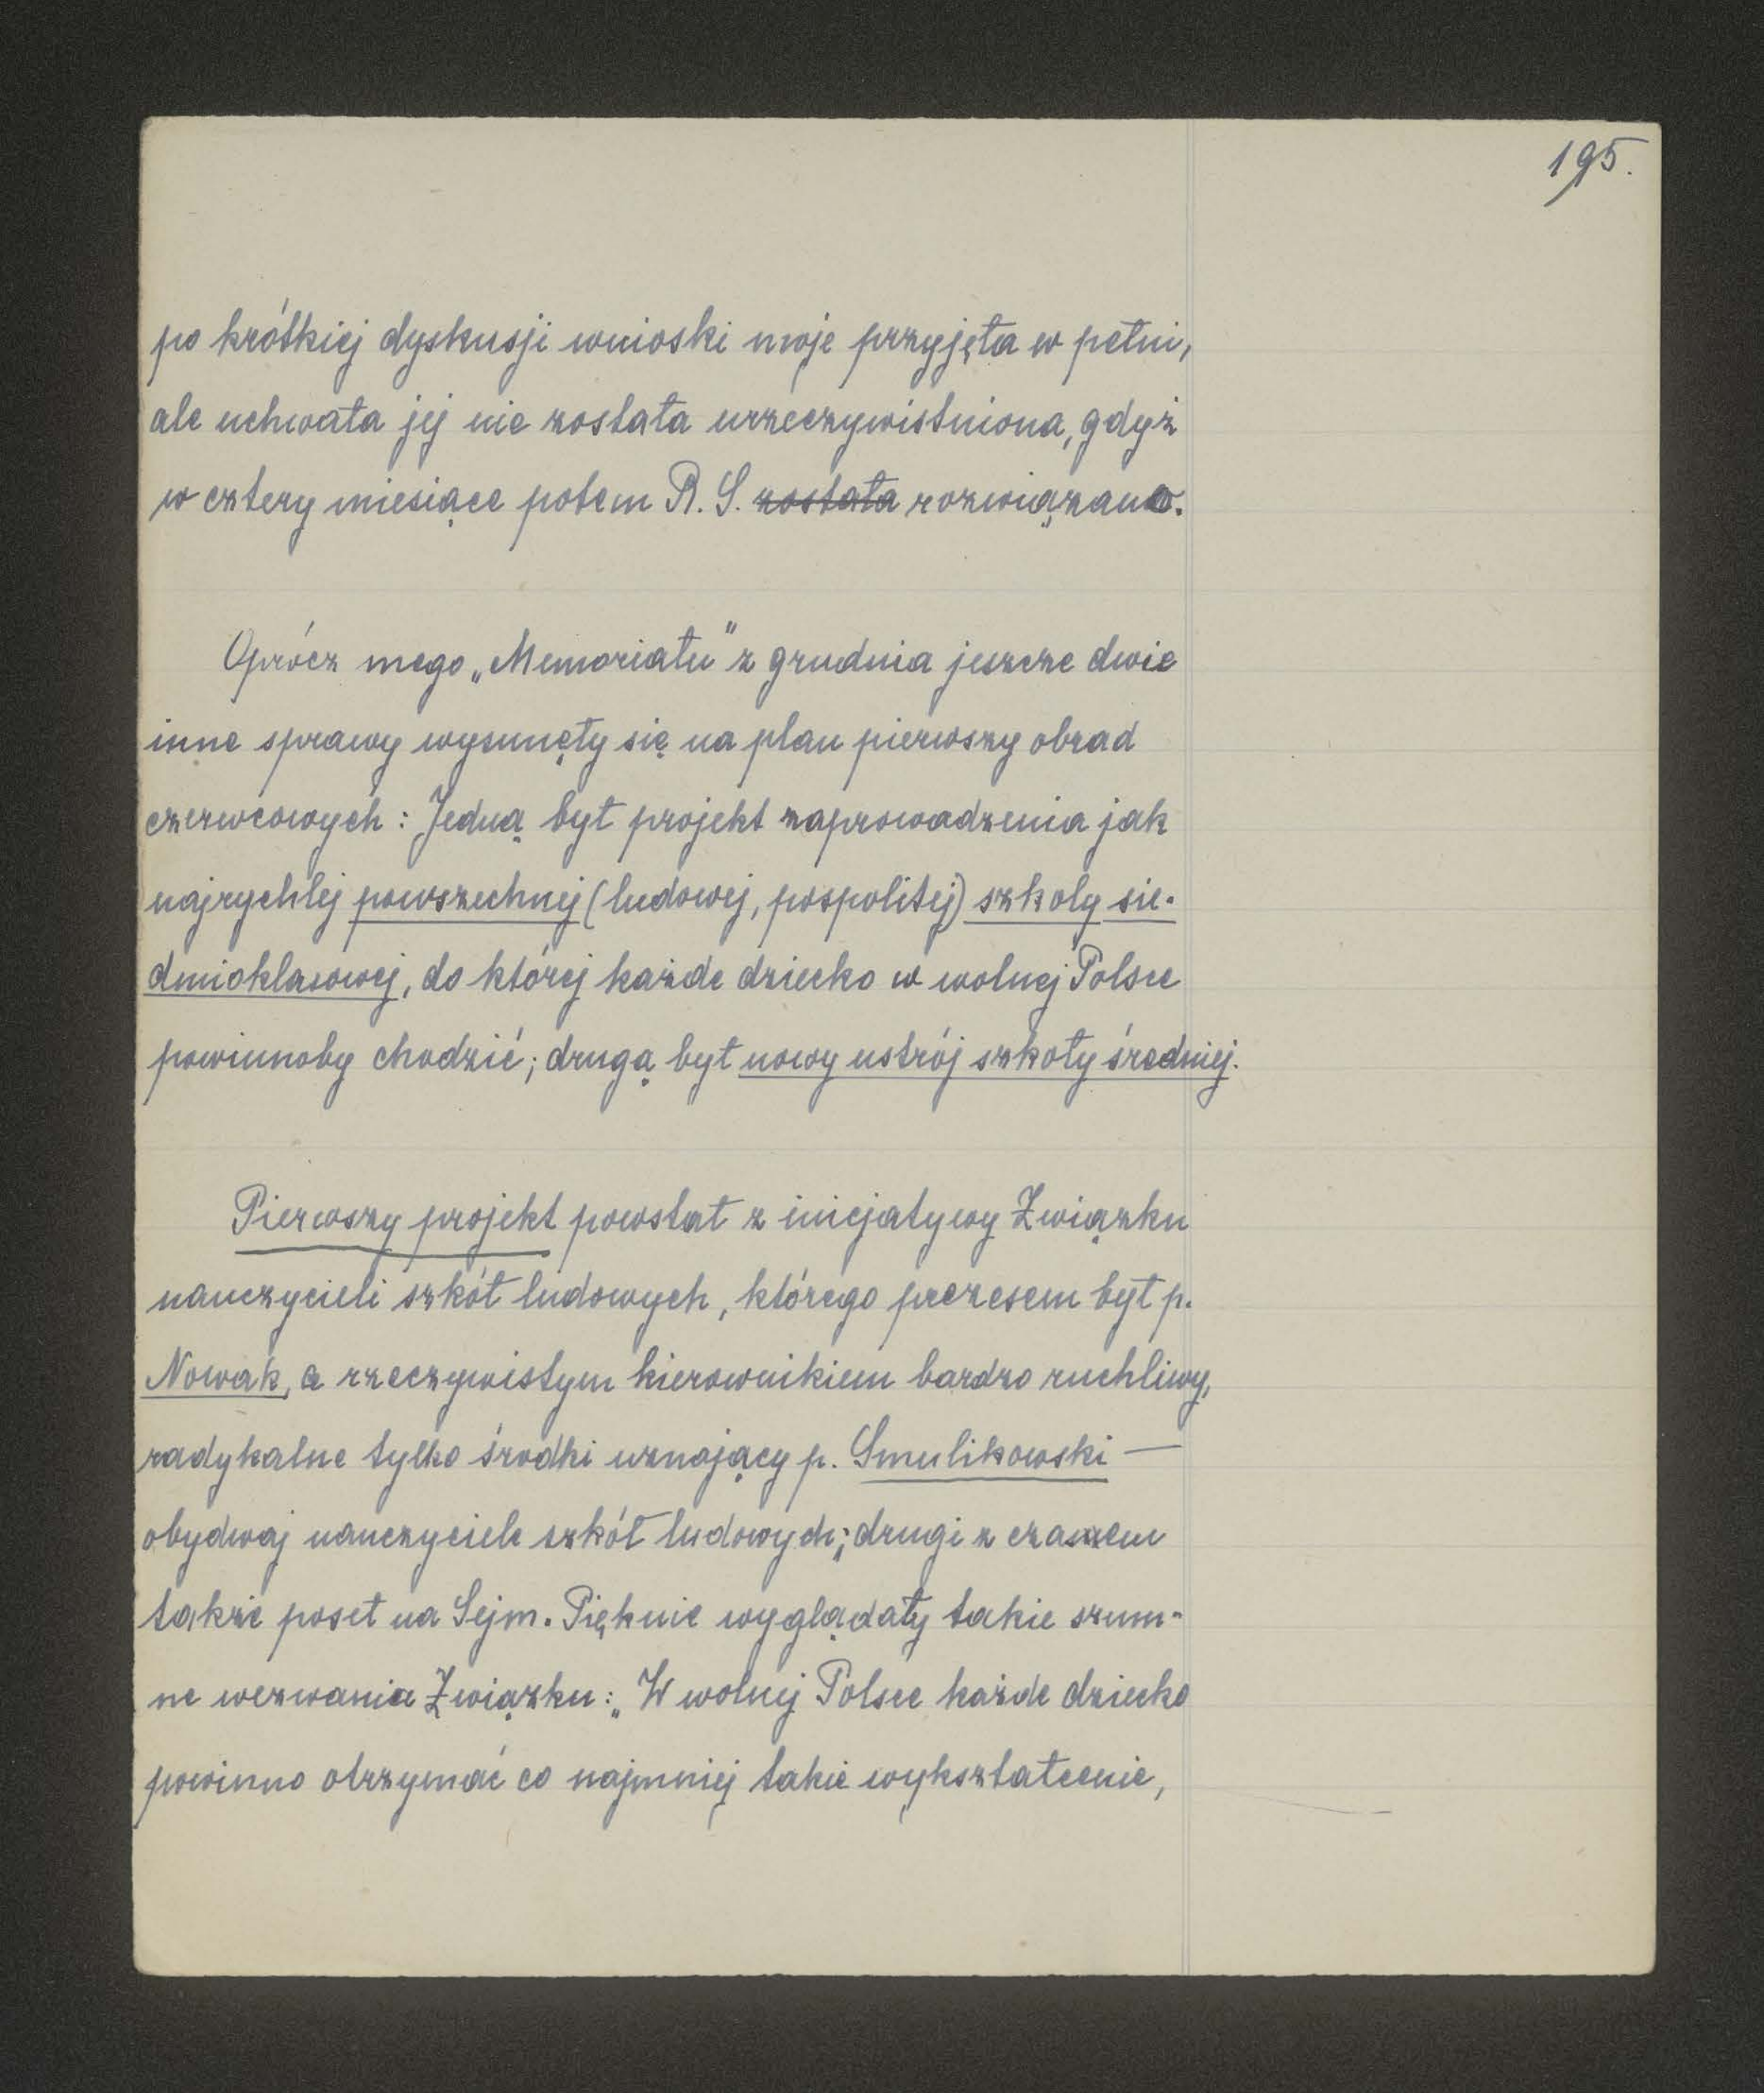 195.
po krótkiej dyskusji wnioski moje przyjęła w pełni,
ale uchwała jej nie została urzeczywistniona, gdyż
w cztery miesiące potem R. S. została rozwiązano.
Oprócz mego „Memoriału" z grudnia jeszcze dwie
inne sprawy wysunęły się na plan pierwszy obrad
czerwcowych: Jedną był projekt zaprowadzenia jak
najrychlej powszechnej (ludowej, pospolitej) szkoły sie-
dmioklasowej, do której każde dziecko w wolnej Polsce
powinnoby chodzić; drugą był nowy ustrój szkoły średniej.
Pierwszy projekt powstał z inicjatywy Związku
nauczycieli szkół ludowych, którego prezesem był p.
Nowak, a rzeczywistym kierownikiem bardzo ruchliwy,
radykalne tylko środki uznający p. Smulikowski —
obydwaj nauczyciele szkół ludowych; drugi z czasem
także poseł na Sejm. Pięknie wyglądały takie szum-
ne wezwania Związku: „W wolnej Polsce każde dziecko
powinno otrzymać co najmniej takie wykształcenie,